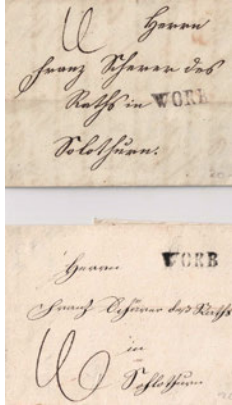 Herrn
Franz Scherer des
Raths in WORB
Solothurn.
Herrn WORB
Franz Schärer des Raths
in
Sohlothurn